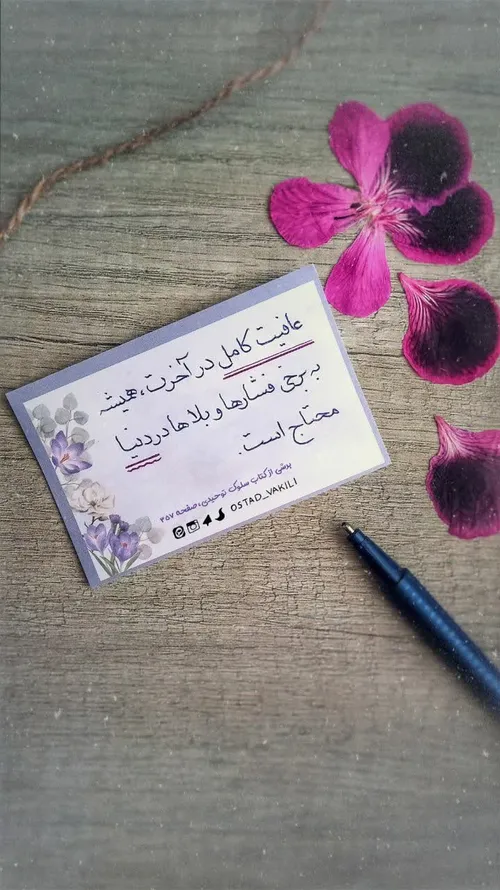 عافیت کامل در آخرت، همیشه
به برخی فشارها و بلاها در دنیا
محتاج است.
برشی از کتاب سلوک توحیدی، صفحه ۲۵۷
OSTAD_VAKILI